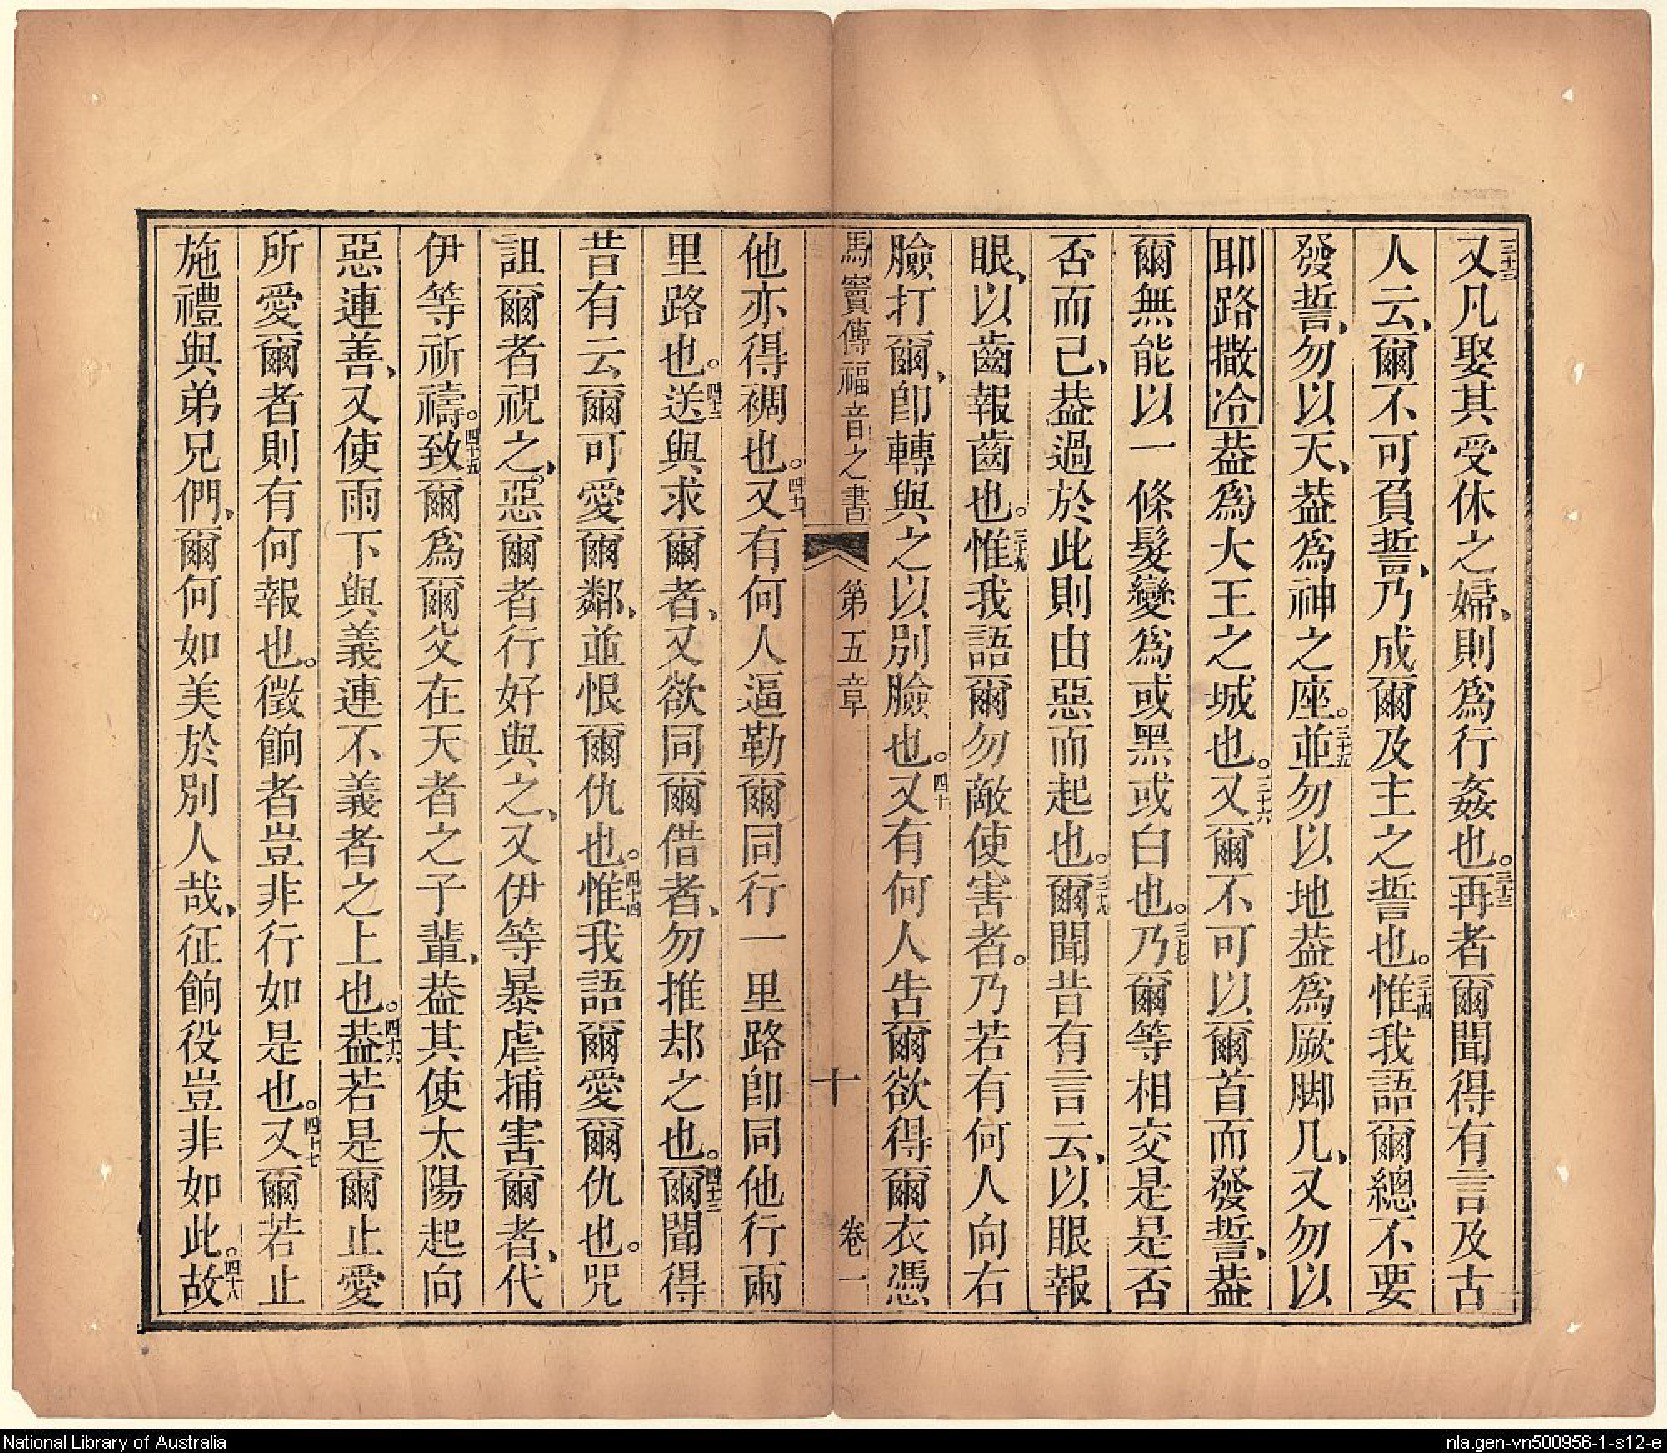 又凡娶其受休之婦、則爲行姦也。三十三再者爾聞得有言及古
人云、爾不可負誓、乃成爾及主之誓也。三十四惟我語爾總不要
發誓、勿以天、葢爲神之座。三十五並勿以地葢爲厥脚几、又勿以
耶路撒冷葢爲大王之城也。三十六又爾不可以爾首而發誓、葢
爾無能以一條髮變爲或黑或白也。三十七乃爾等相交是是否
否而已、葢過於此則由惡而起也。三十八爾聞昔有言云、以眼報
眼、以齒報齒也。三十九惟我語爾勿敵使害者。乃若有何人向右
臉打爾、卽轉與之以別臉也。四十又有何人告爾欲得爾衣憑
馬竇傳福音之書 第五章 十 卷一
他亦得裯也。四十一又有何人逼勒爾同行一里路卽同他行兩
里路也。四十二送與求爾者、又欲同爾借者、勿推却之也。四十三爾聞得
昔有云爾可愛爾鄰、並恨爾仇也。四十四惟我語爾愛爾仇也。咒
詛爾者祝之、惡爾者行好與之、又伊等暴虐捕害爾者、代
伊等祈禱。四十五致爾爲爾父在天者之子輩、葢其使太陽起向
惡連善、又使雨下與義連不義者之上也。四十六葢若是爾止愛
所愛爾者則有何報也。徵餉者豈非行如是也。四十七又爾若止
施禮與弟兄們、爾何如美於別人哉、征餉役豈非如此。四十八故
National Library of Australia
nla.gen-vn500956-1-s12-e